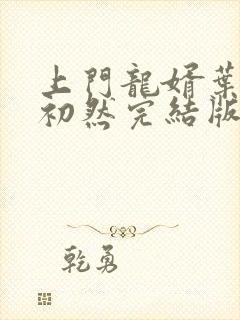 上門龍婿葉
初然完結版
乾勇